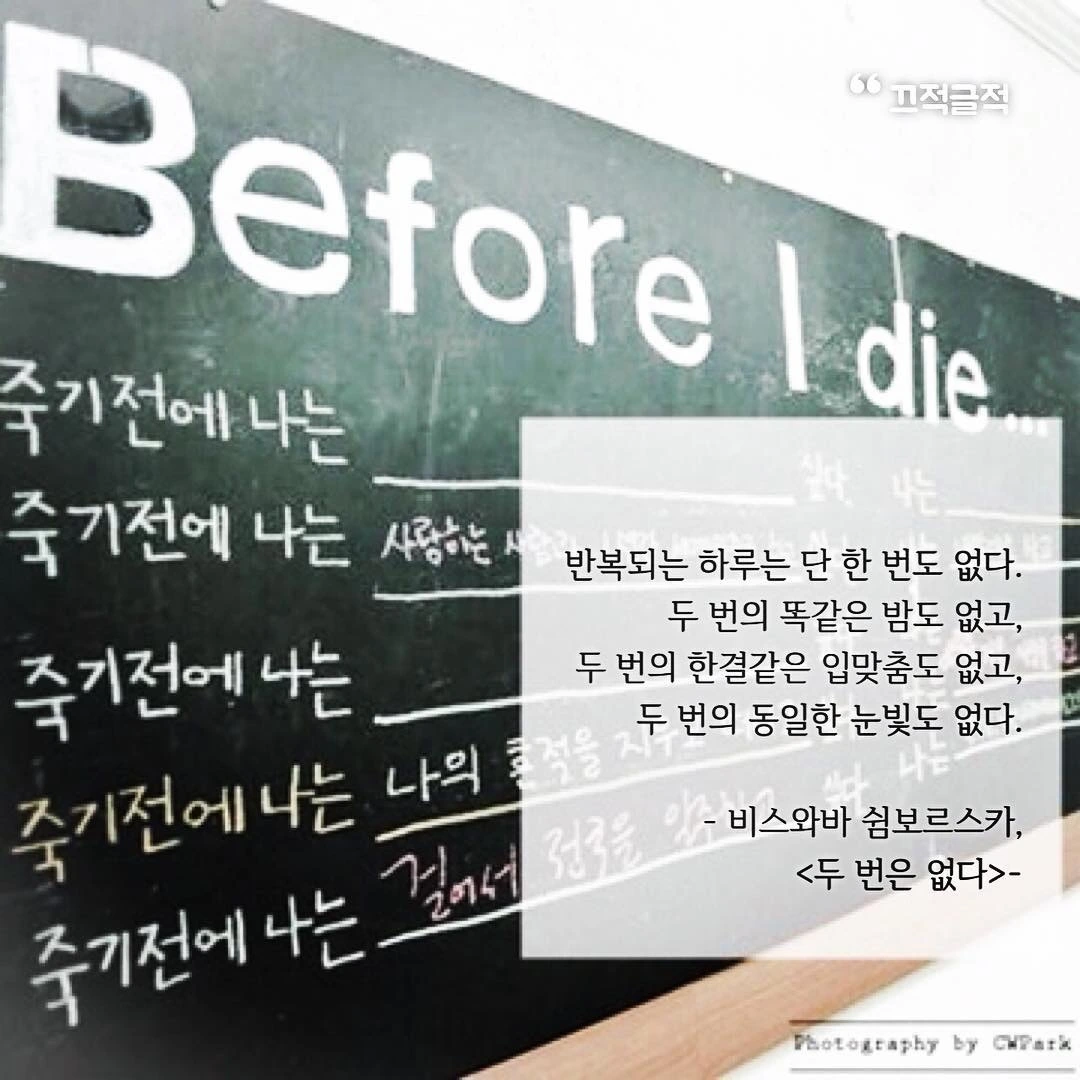 ❝ 끄적글적
Before I die...
죽기전에 나는
싶다. 나는
죽기전에 나는 사랑하는
죽기전에 나는
죽기전에 나는 나의 흔적을
죽기전에 나는 걸어서 전국을
싶다 나는
반복되는 하루는 단 한 번도 없다.
두 번의 똑같은 밤도 없고,
두 번의 한결같은 입맞춤도 없고,
두 번의 동일한 눈빛도 없다.
- 비스와바 쉼보르스카,
<두 번은 없다>-
Photography by CWPark